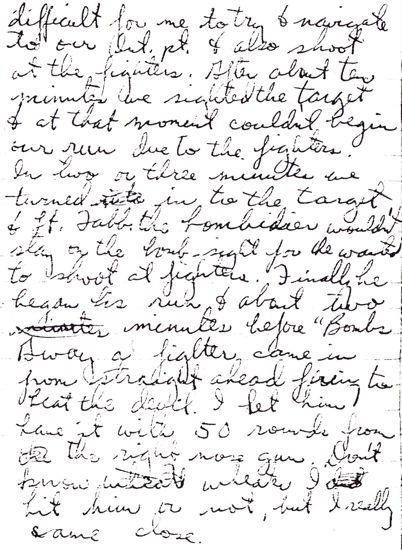 difficult for me to try & navigate
to our Int. pt. & also shoot
at the fighters. After about ten
minutes we sighted the target
& at that moment couldn't begin
our run due to the fighters.
In two or three minutes we
turned in to the target
& Lt. Tabb the bombidier wouldn't
stay on the bomb-sight for he wanted
to shoot at fighters. Finally he
began his run & about two
minutes minutes before "Bombs
Away" a fighter came in
from straight ahead firing to
beat the devil. I let him
have it with 50 rounds from
the right nose gun. Don't
know wheater I
hit him or not, but I really
came close.